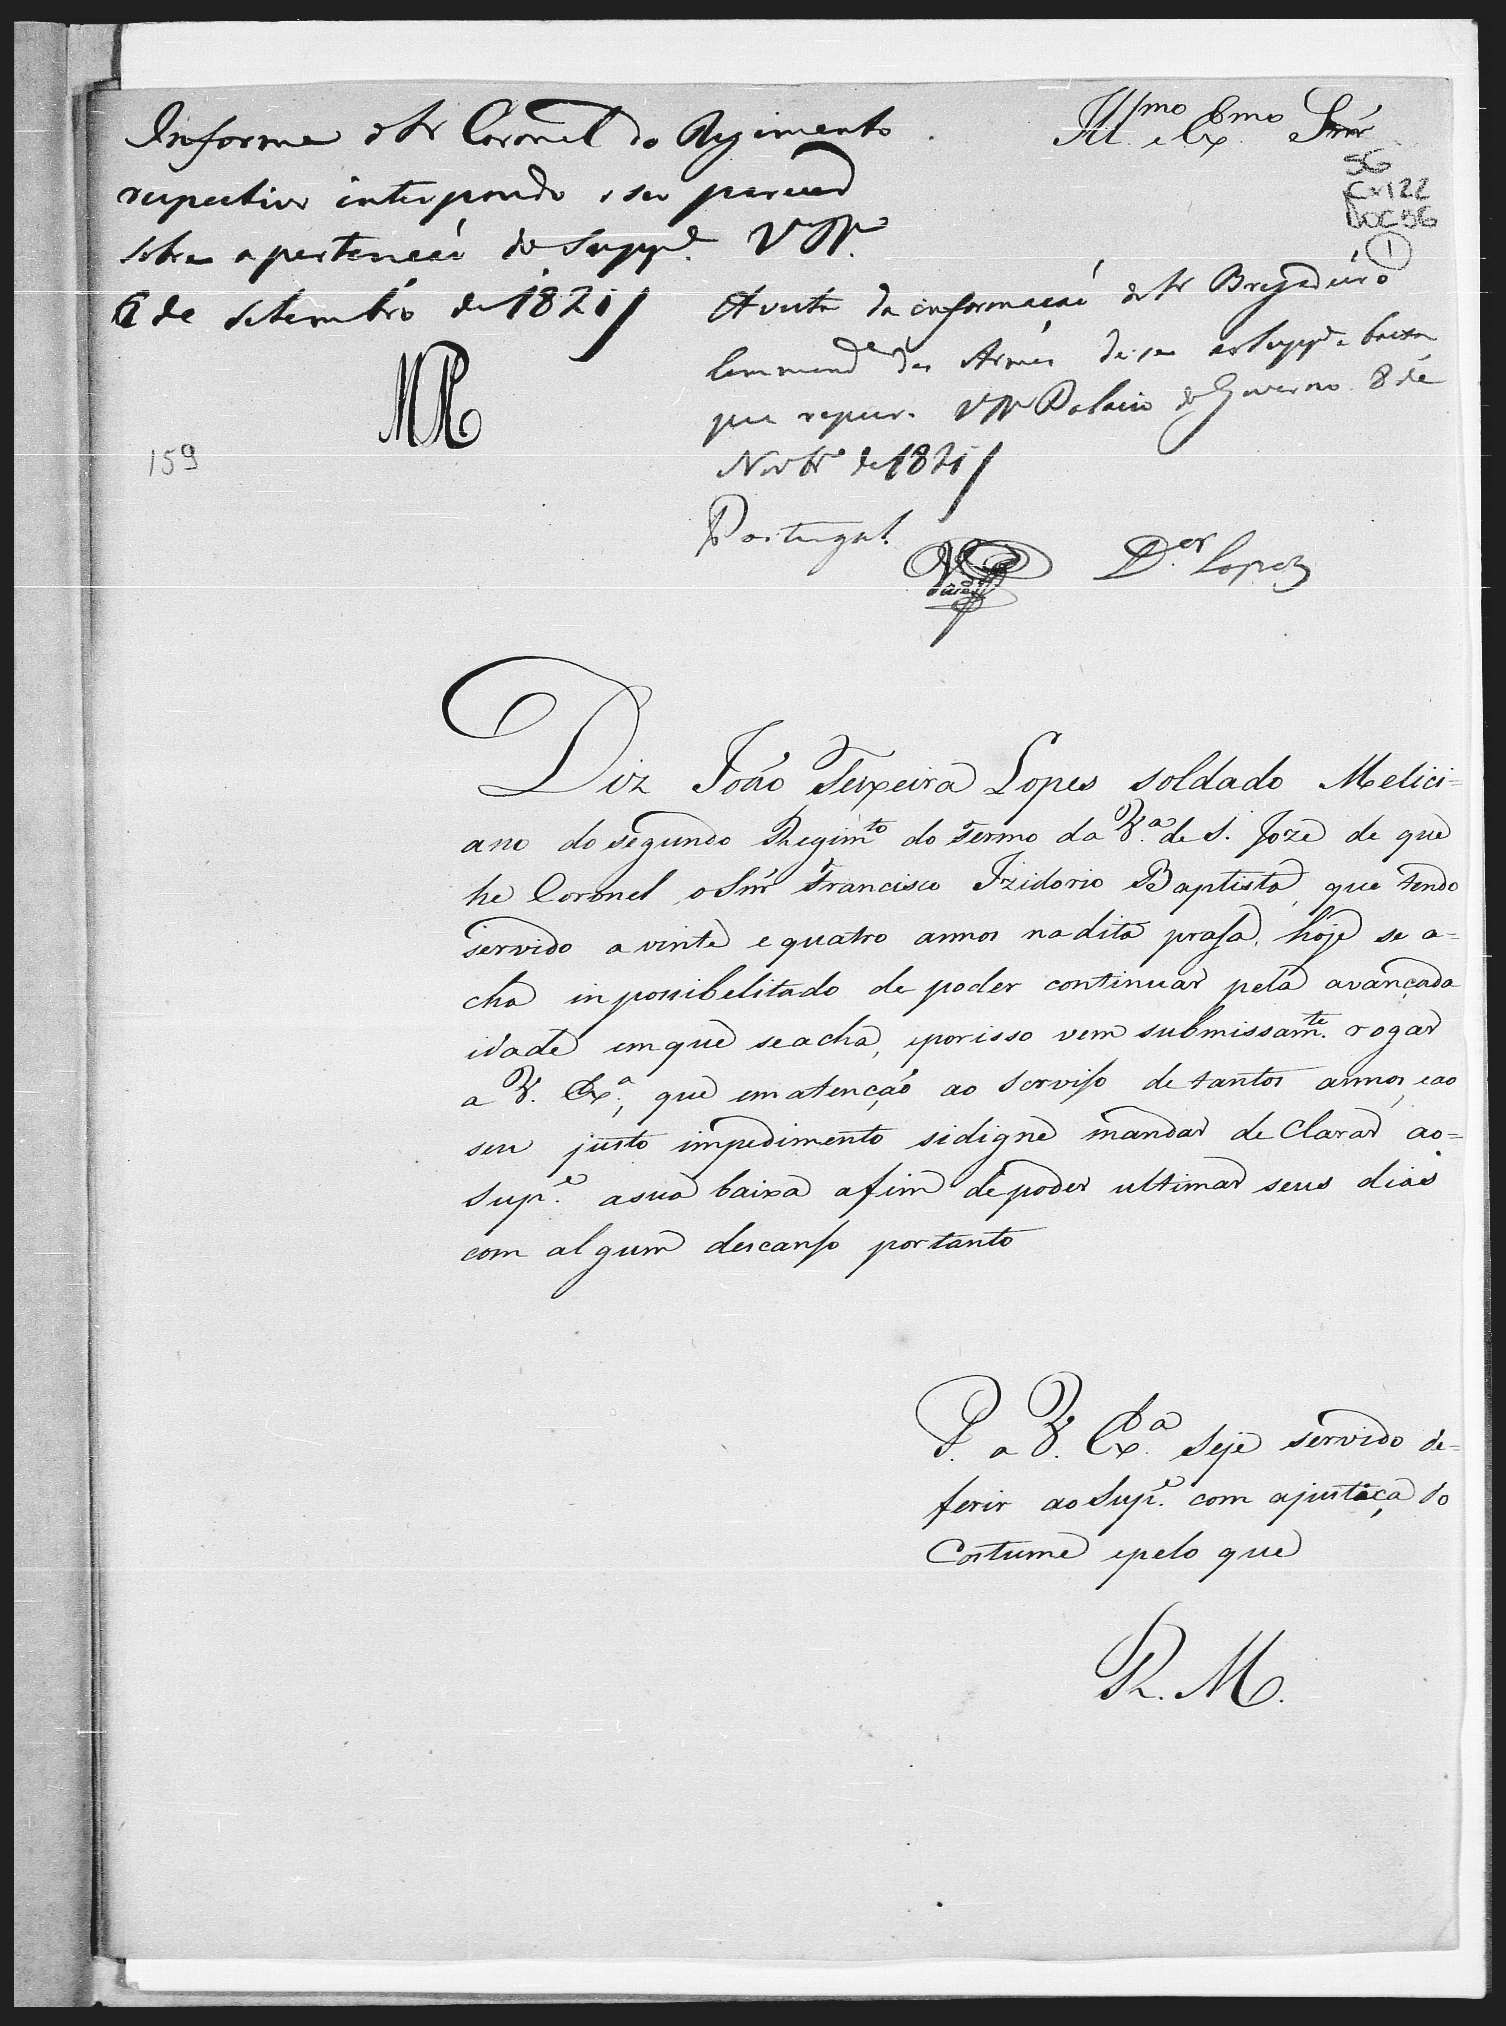 Informe o Sr Coronel do Regimento
respectivo interpondo o seu parecer
sobre a pertenção do Suppe. VRª.
6 de Setembro de 1821/
MR
159
Illmo e Exmo Snr
SG
Cx122
DOC56
1
A vista da informação do Sr Brigadeiro
Commande das Armas de-se ao Suppe a baixa
que requer. VR Palacio do Governo 8 de
Novbro de 1821/
Portugal.
Der Lopez
Diz João Teixeira Lopes soldado Melici=
ano do segundo Regimto do Termo da Vª de S. Joze de que
he Coronel o Snr Francisco Izidorio Baptista, que tendo
servido a vinte e quatro annos na dita prasa, hoje se a=
cha inpossibelitado de poder continuar pela avançada
idade em que se acha, e por isso vem submissamte. rogar
a V. Exª, que em atenção ao Serviso de tantos annos, e ao
seu justo impedimento si digne mandar de Clarar ao=
Supe. a sua baixa a fim de poder ultimar seus dias
com algum descanso por tanto
P. a V. Exª. Seje servido de=
ferir ao Supe. com a justiça do
Costume e pelo que
R. M.